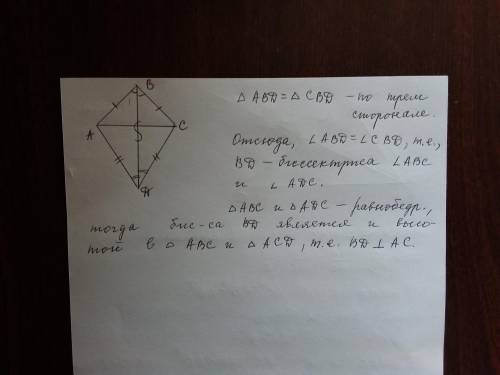 B
A
C
D
△ ABD = △ CBD – по трем
сторонам.
Отсюда, ∠ABD = ∠CBD, т.е.,
BD – биссектриса ∠ABC
и ∠ADC.
△ABC и △ADC – равнобедр.,
тогда бис-са BD является и высо-
той в △ABC и △ACD, т.е. BD ⊥ AC.